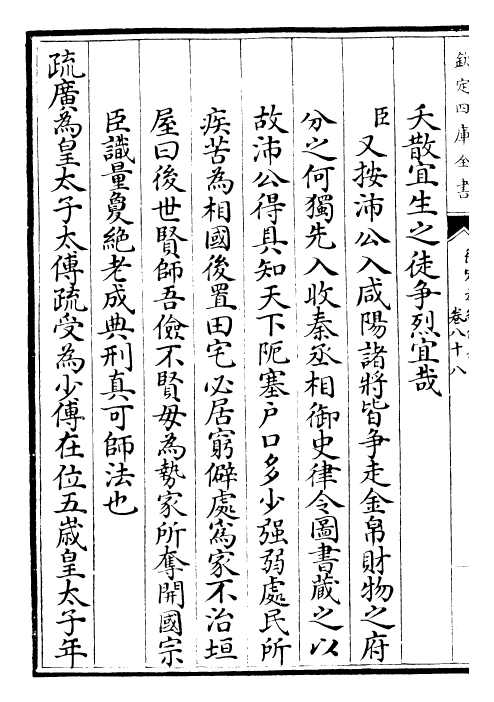 欽定四庫全書
卷八十八
夭散宜生之徒争烈宜哉
臣又按沛公入咸陽諸將皆争走金帛財物之府
分之何獨先入收秦丞相御史律令圖書藏之以
故沛公得具知天下阨塞户口多少强弱處民所
疾苦為相國後置田宅必居窮僻處為家不治垣
屋曰後世賢師吾儉不賢毋為勢家所奪開國宗
臣識量敻絶老成典刑真可師法也
疏廣為皇太子太傅疏受為少傅在位五嵗皇太子年